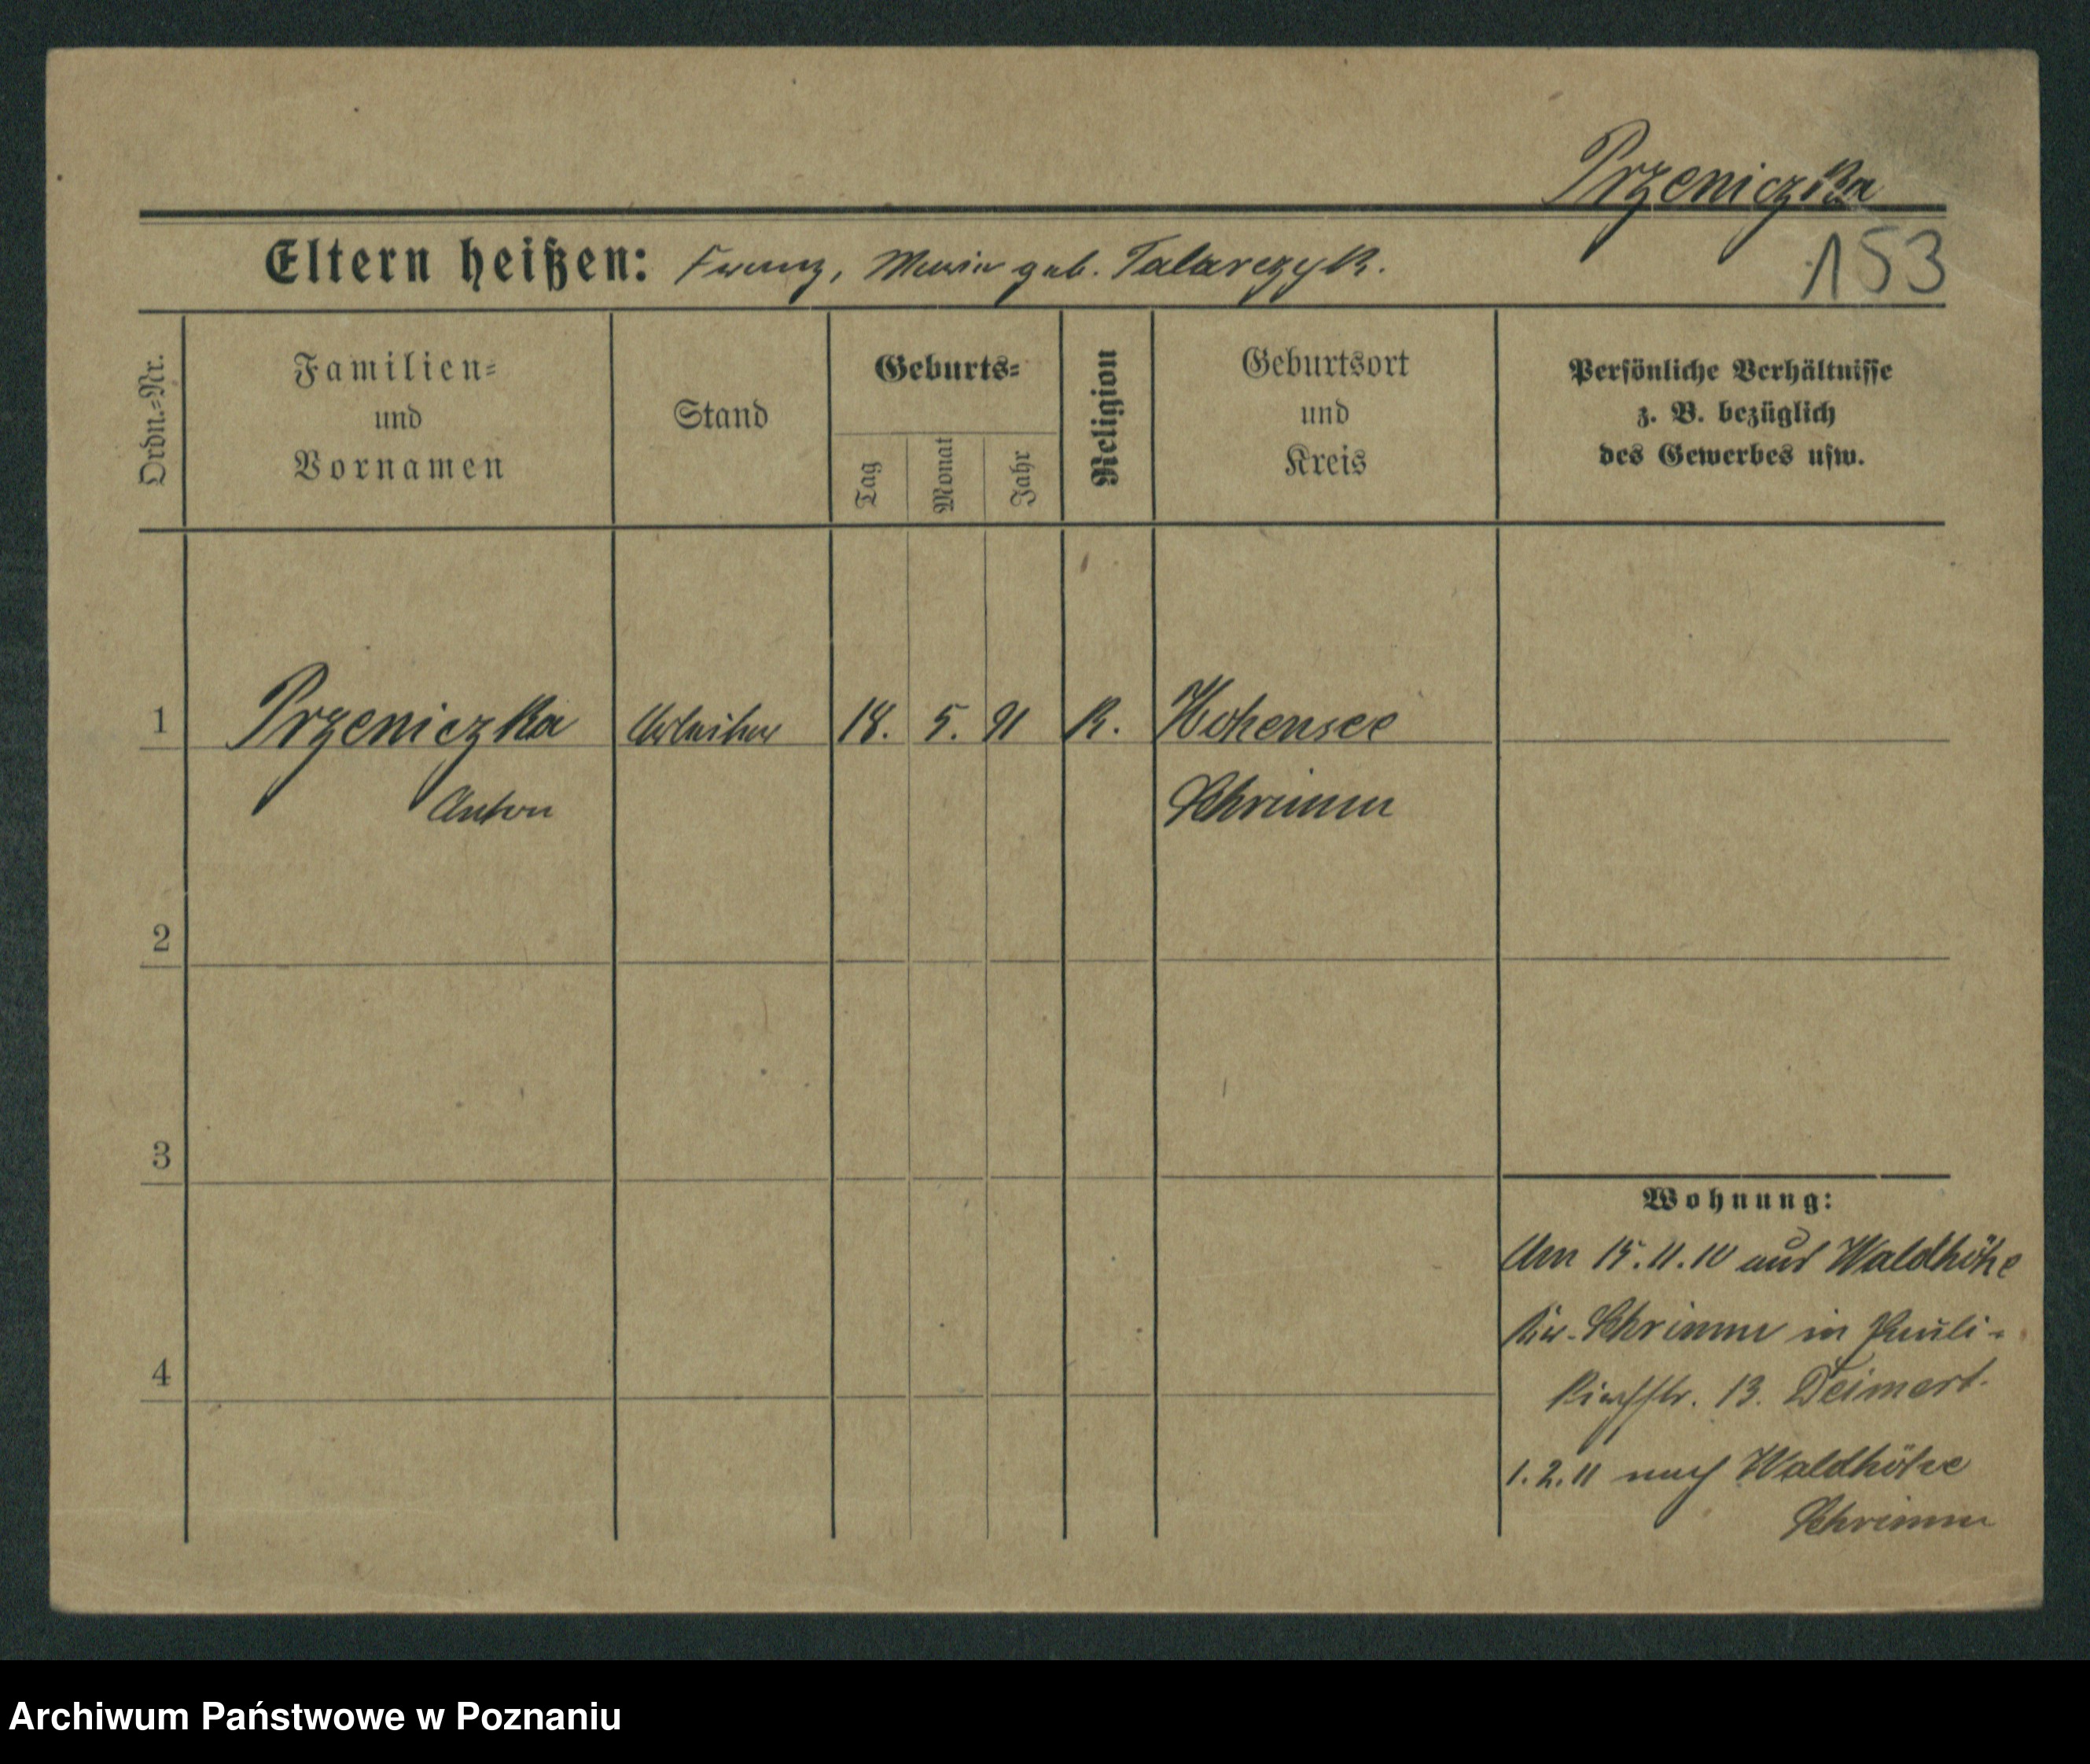 Przeniczka
Eltern heißen: Franz, Maria geb. Talarczyk.
153
Ordn.=Nr.
Familien=
und
Vornamen
Stand
Geburts=
Tag
Monat
Jahr
Religion
Geburtsort
und
Kreis
Persönliche Verhältnisse
z. B. bezüglich
des Gewerbes usw.
1 Przeniczka Arbeiter 18. 5. 91 K. Hohensee
Anton Schrimm
2
3
Wohnung:
Am 15.11.10 aus Waldhöhe
Kr. Schrimm in Pauli-
4
Kirchstr. 13. Deimert.
1.2.11 nach Waldhöhe
Schrimm
Archiwum Państwowe w Poznaniu